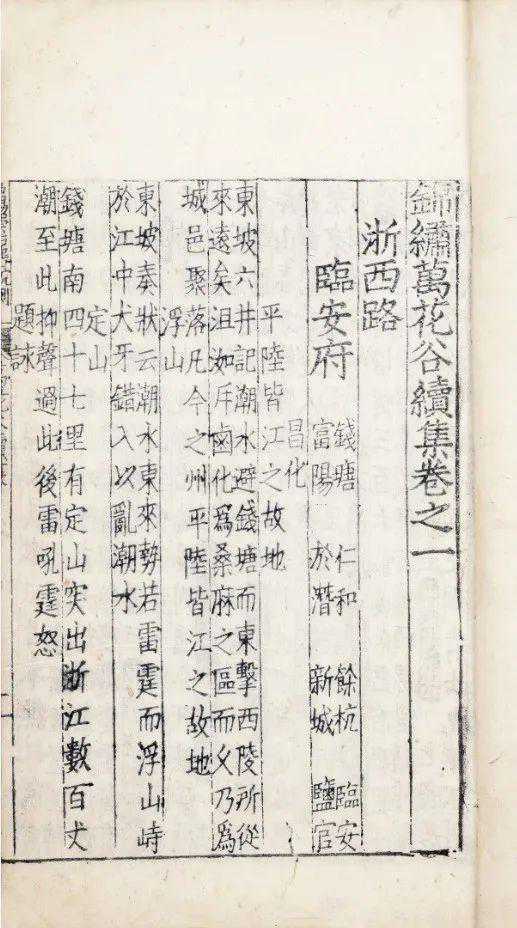 錦繡萬花谷續集卷之一
浙西路
臨安府
錢塘 仁和 餘杭 臨安
富陽 於潛 新城 鹽官
昌化
平陸皆江之故地
東坡六井記潮水避錢塘而東擊西陵所從
來遠矣沮洳斥鹵化爲桑麻之區而久乃爲
城邑聚落凡今之州平陸皆江之故地
浮山
東坡奏狀云潮水東來勢若雷霆而浮山峙
於江中犬牙錯入以亂潮水
定山
錢塘南四十七里有定山突出浙江數百丈
潮至此抑聲過此後雷吼霆怒
題詠